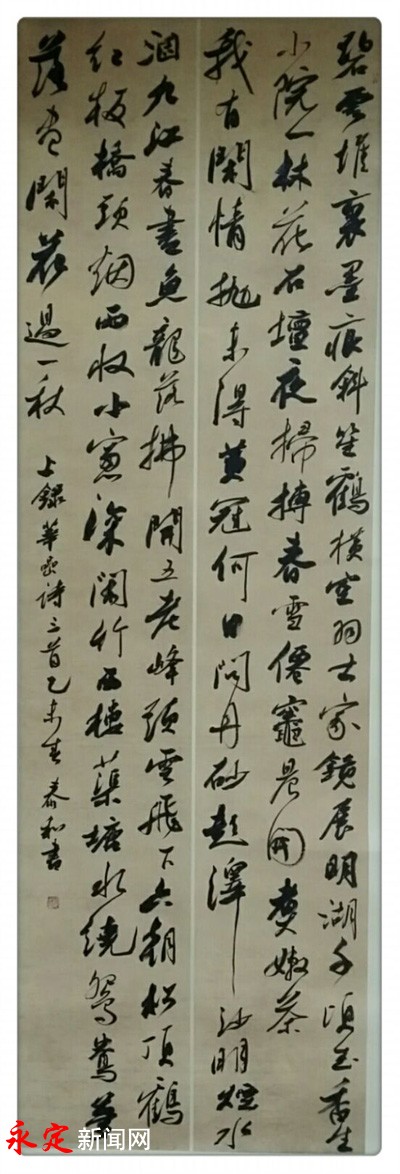 碧雲堆裏墨痕斜笙鶴橫空羽士家鏡展明湖千頃玉香生
小院一林花石壇夜掃摶春雪僊竈晨開煮嫩茶
我有閑情抛未得黃冠何日問丹砂彭澤沙明煙水
涸九江春盡魚龍落拂開五老峰頭雲飛下六朝松頂鶴
紅板橋頭烟雨收小窻深閉竹西樓蕖塘水繞鴛鴦夢
落盡閑花過一秋
上錄華嵒詩三首乙未春泰和書
永定新闻网